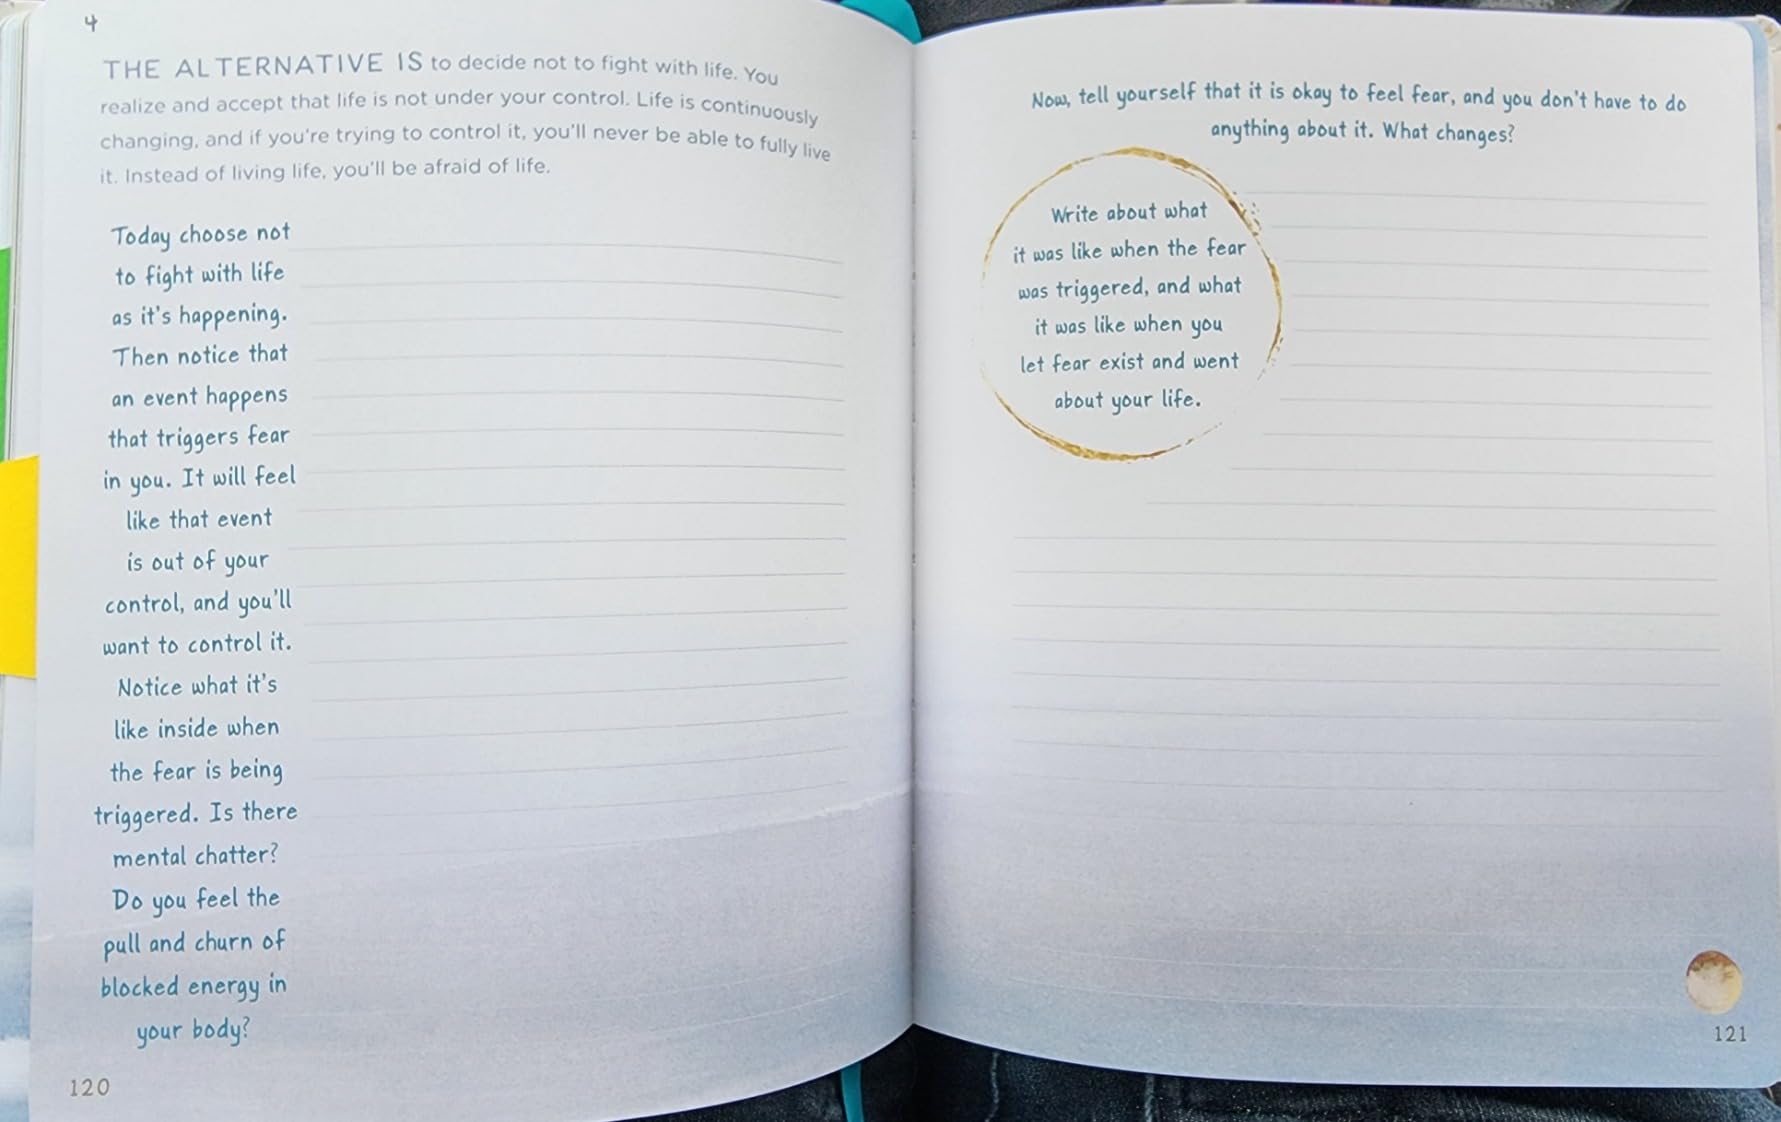 4
THE ALTERNATIVE IS to decide not to fight with life. You
realize and accept that life is not under your control. Life is continuously
changing, and if you're trying to control it, you'll never be able to fully live
it. Instead of living life, you'll be afraid of life.
Today choose not
to fight with life
as it's happening.
Then notice that
an event happens
that triggers fear
in you. It will feel
like that event
is out of your
control, and you'll
want to control it.
Notice what it's
like inside when
the fear is being
triggered. Is there
mental chatter?
Do you feel the
pull and churn of
blocked energy in
your body?
120
Now, tell yourself that it is okay to feel fear, and you don't have to do
anything about it. What changes?
Write about what
it was like when the fear
was triggered, and what
it was like when you
let fear exist and went
about your life.
121